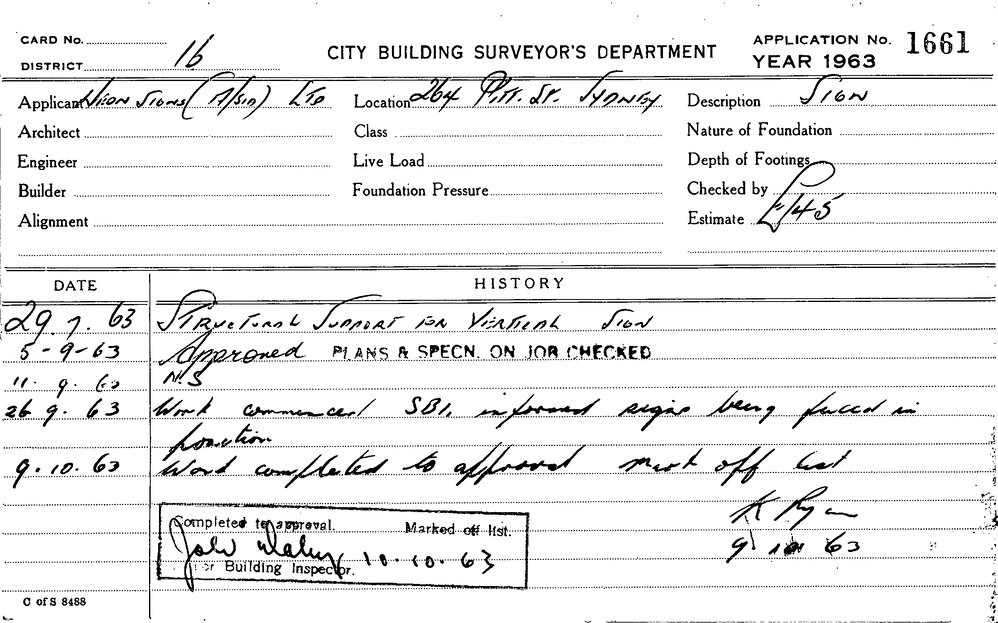 CARD No.
DISTRICT 16
CITY BUILDING SURVEYOR'S DEPARTMENT
APPLICATION No. 1661
YEAR 1963
Applicant Neon Signs (A/sia) Ltd Location 264 Pitt. St. Sydney Description Sign
Architect Class Nature of Foundation
Engineer Live Load Depth of Footings
Builder Foundation Pressure Checked by
Alignment Estimate £145
DATE HISTORY
29. 7. 63 Structural Support for Vertical Sign
5-9-63 Approved PLANS & SPECN. ON JOB CHECKED
11. 9. 63 N.S
26 9. 63 Work commenced SBI. informed signs being placed in
position
9.10.63 Work completed to approval mark off list
K Ryan
9 10 63
Completed to approval. Marked off list.
10.10.63
Building Inspector.
C of S 8488